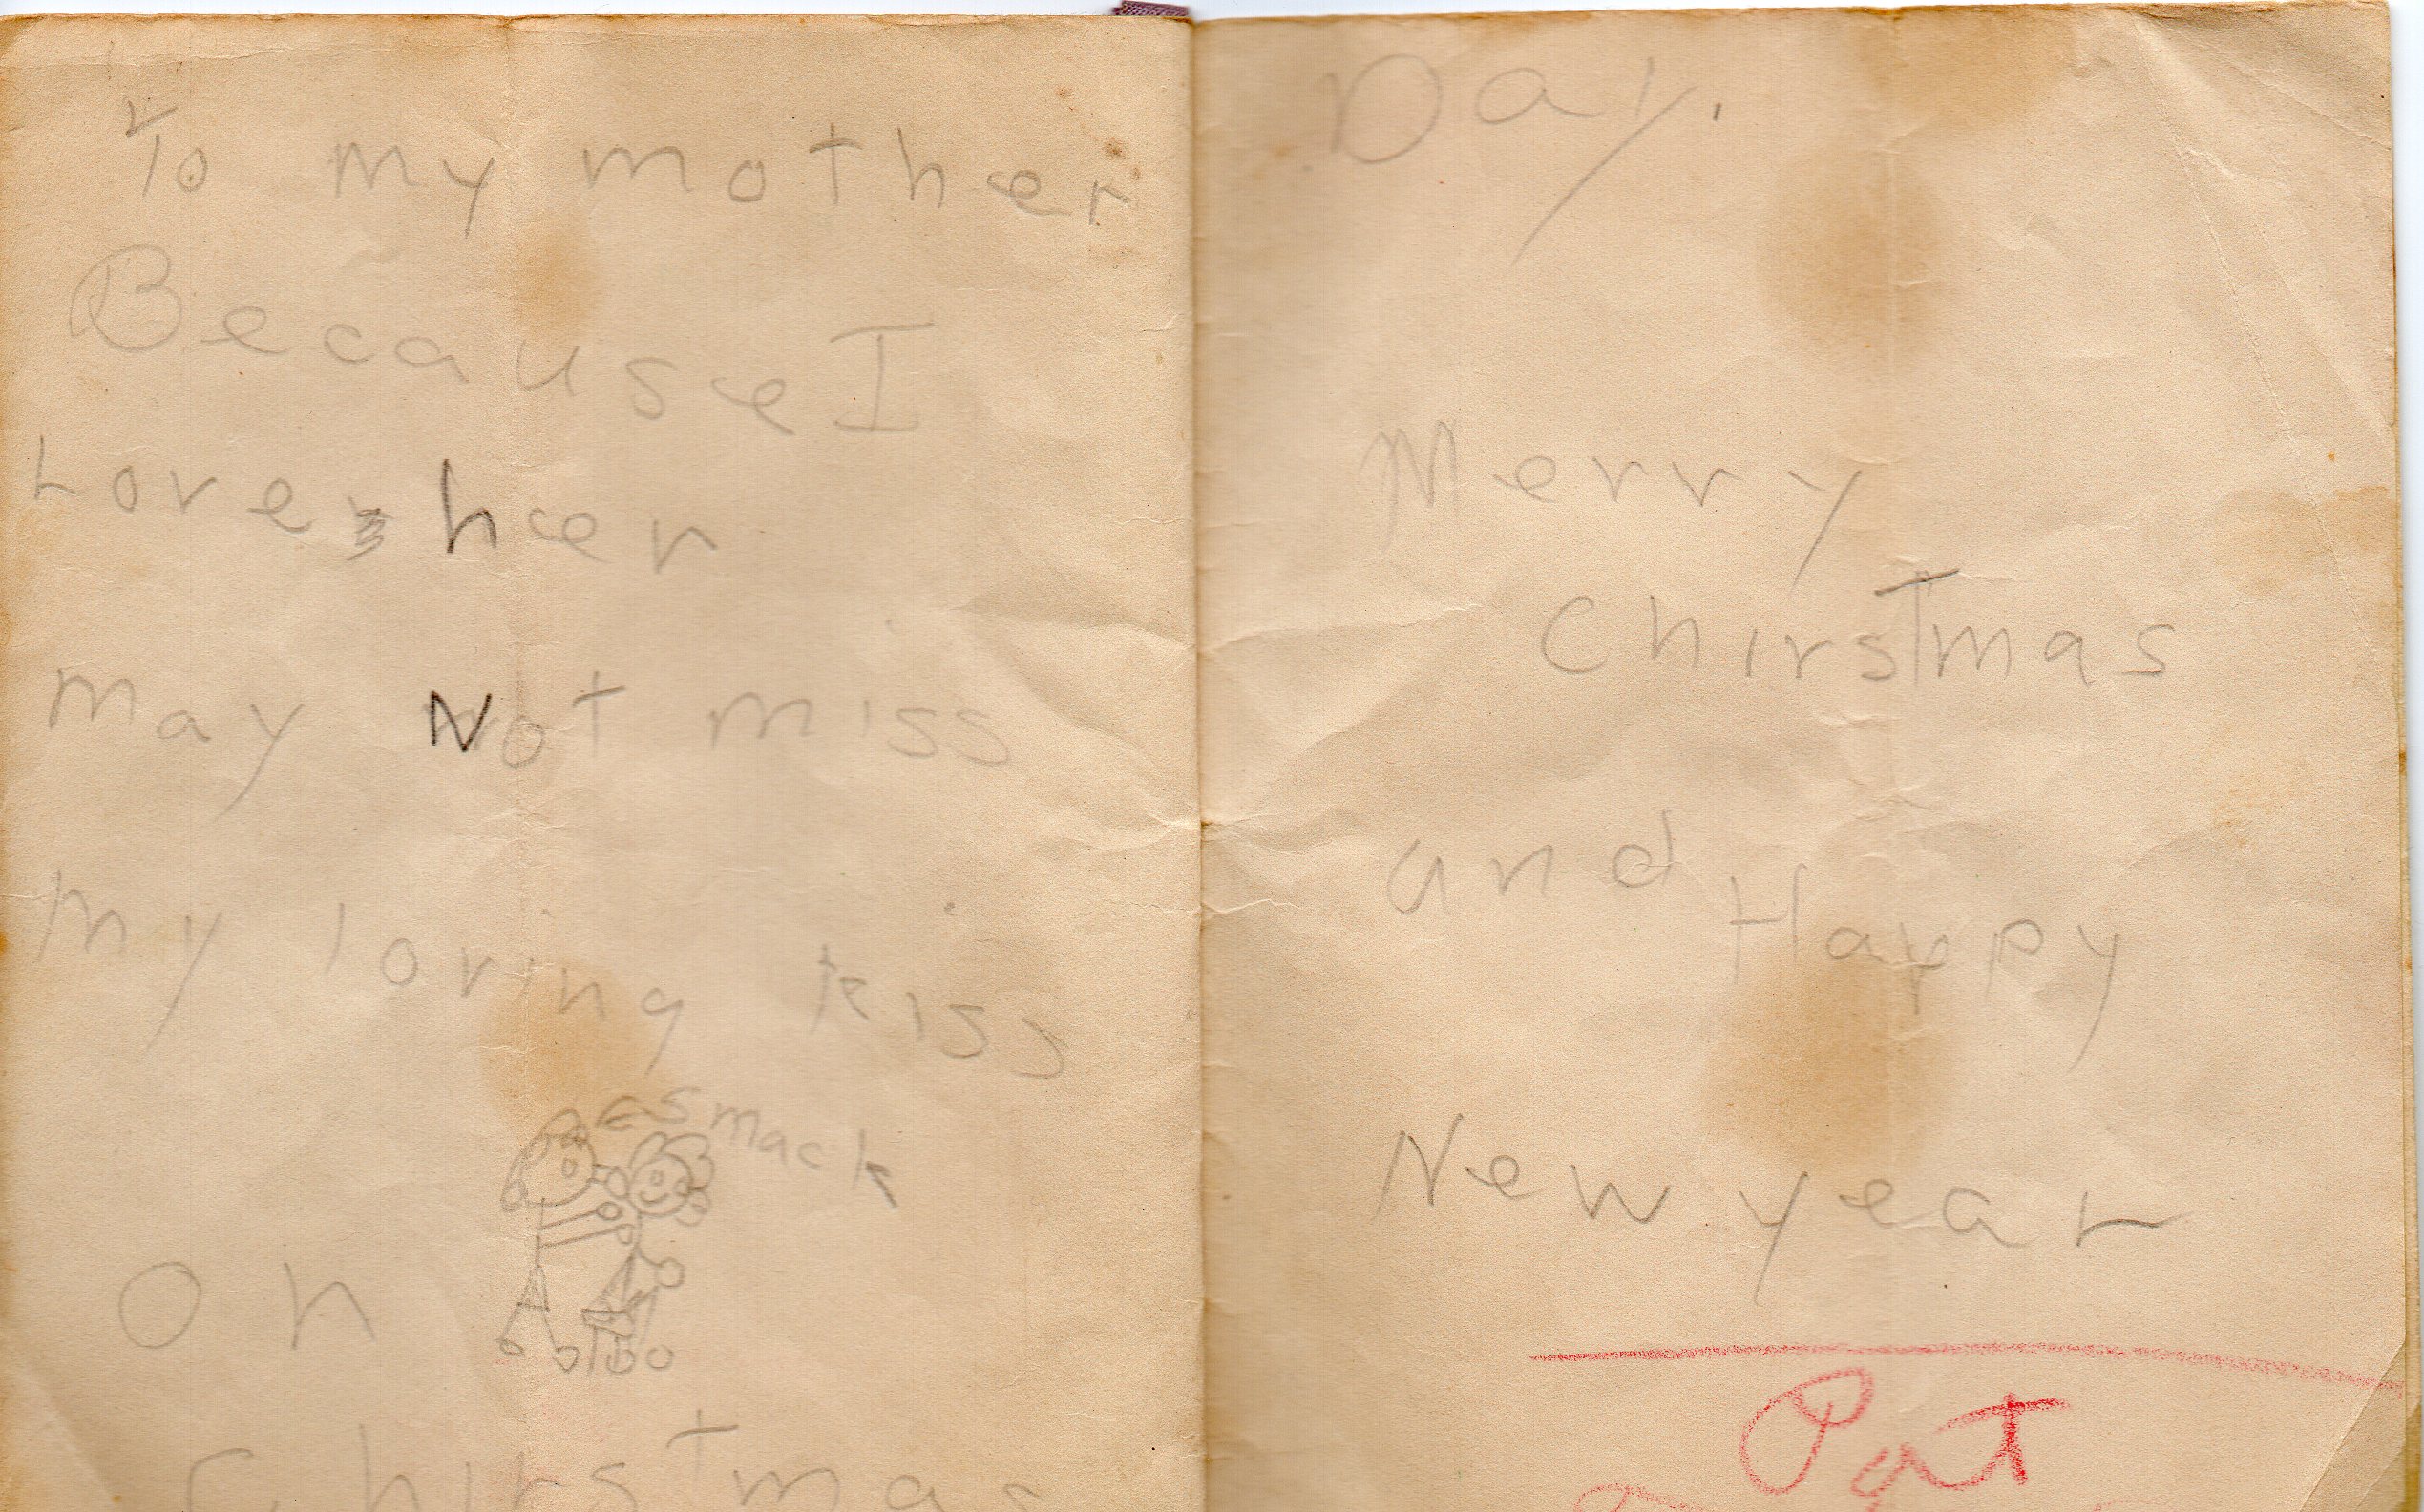 To my mother
Because I
Love her
may Not miss
my loving kiss
smack
on
Chirstmas
Day.
Merry
Chirstmas
and Happy
New year
Pat